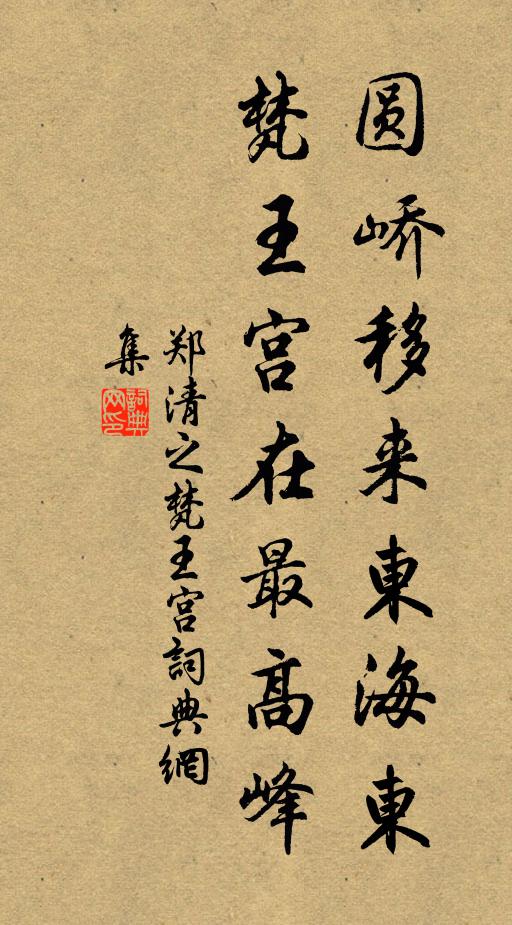 圆峤移来東海東
梵王宫在最高峰
郑清之梵王宫詞典網
集
詞典
网印